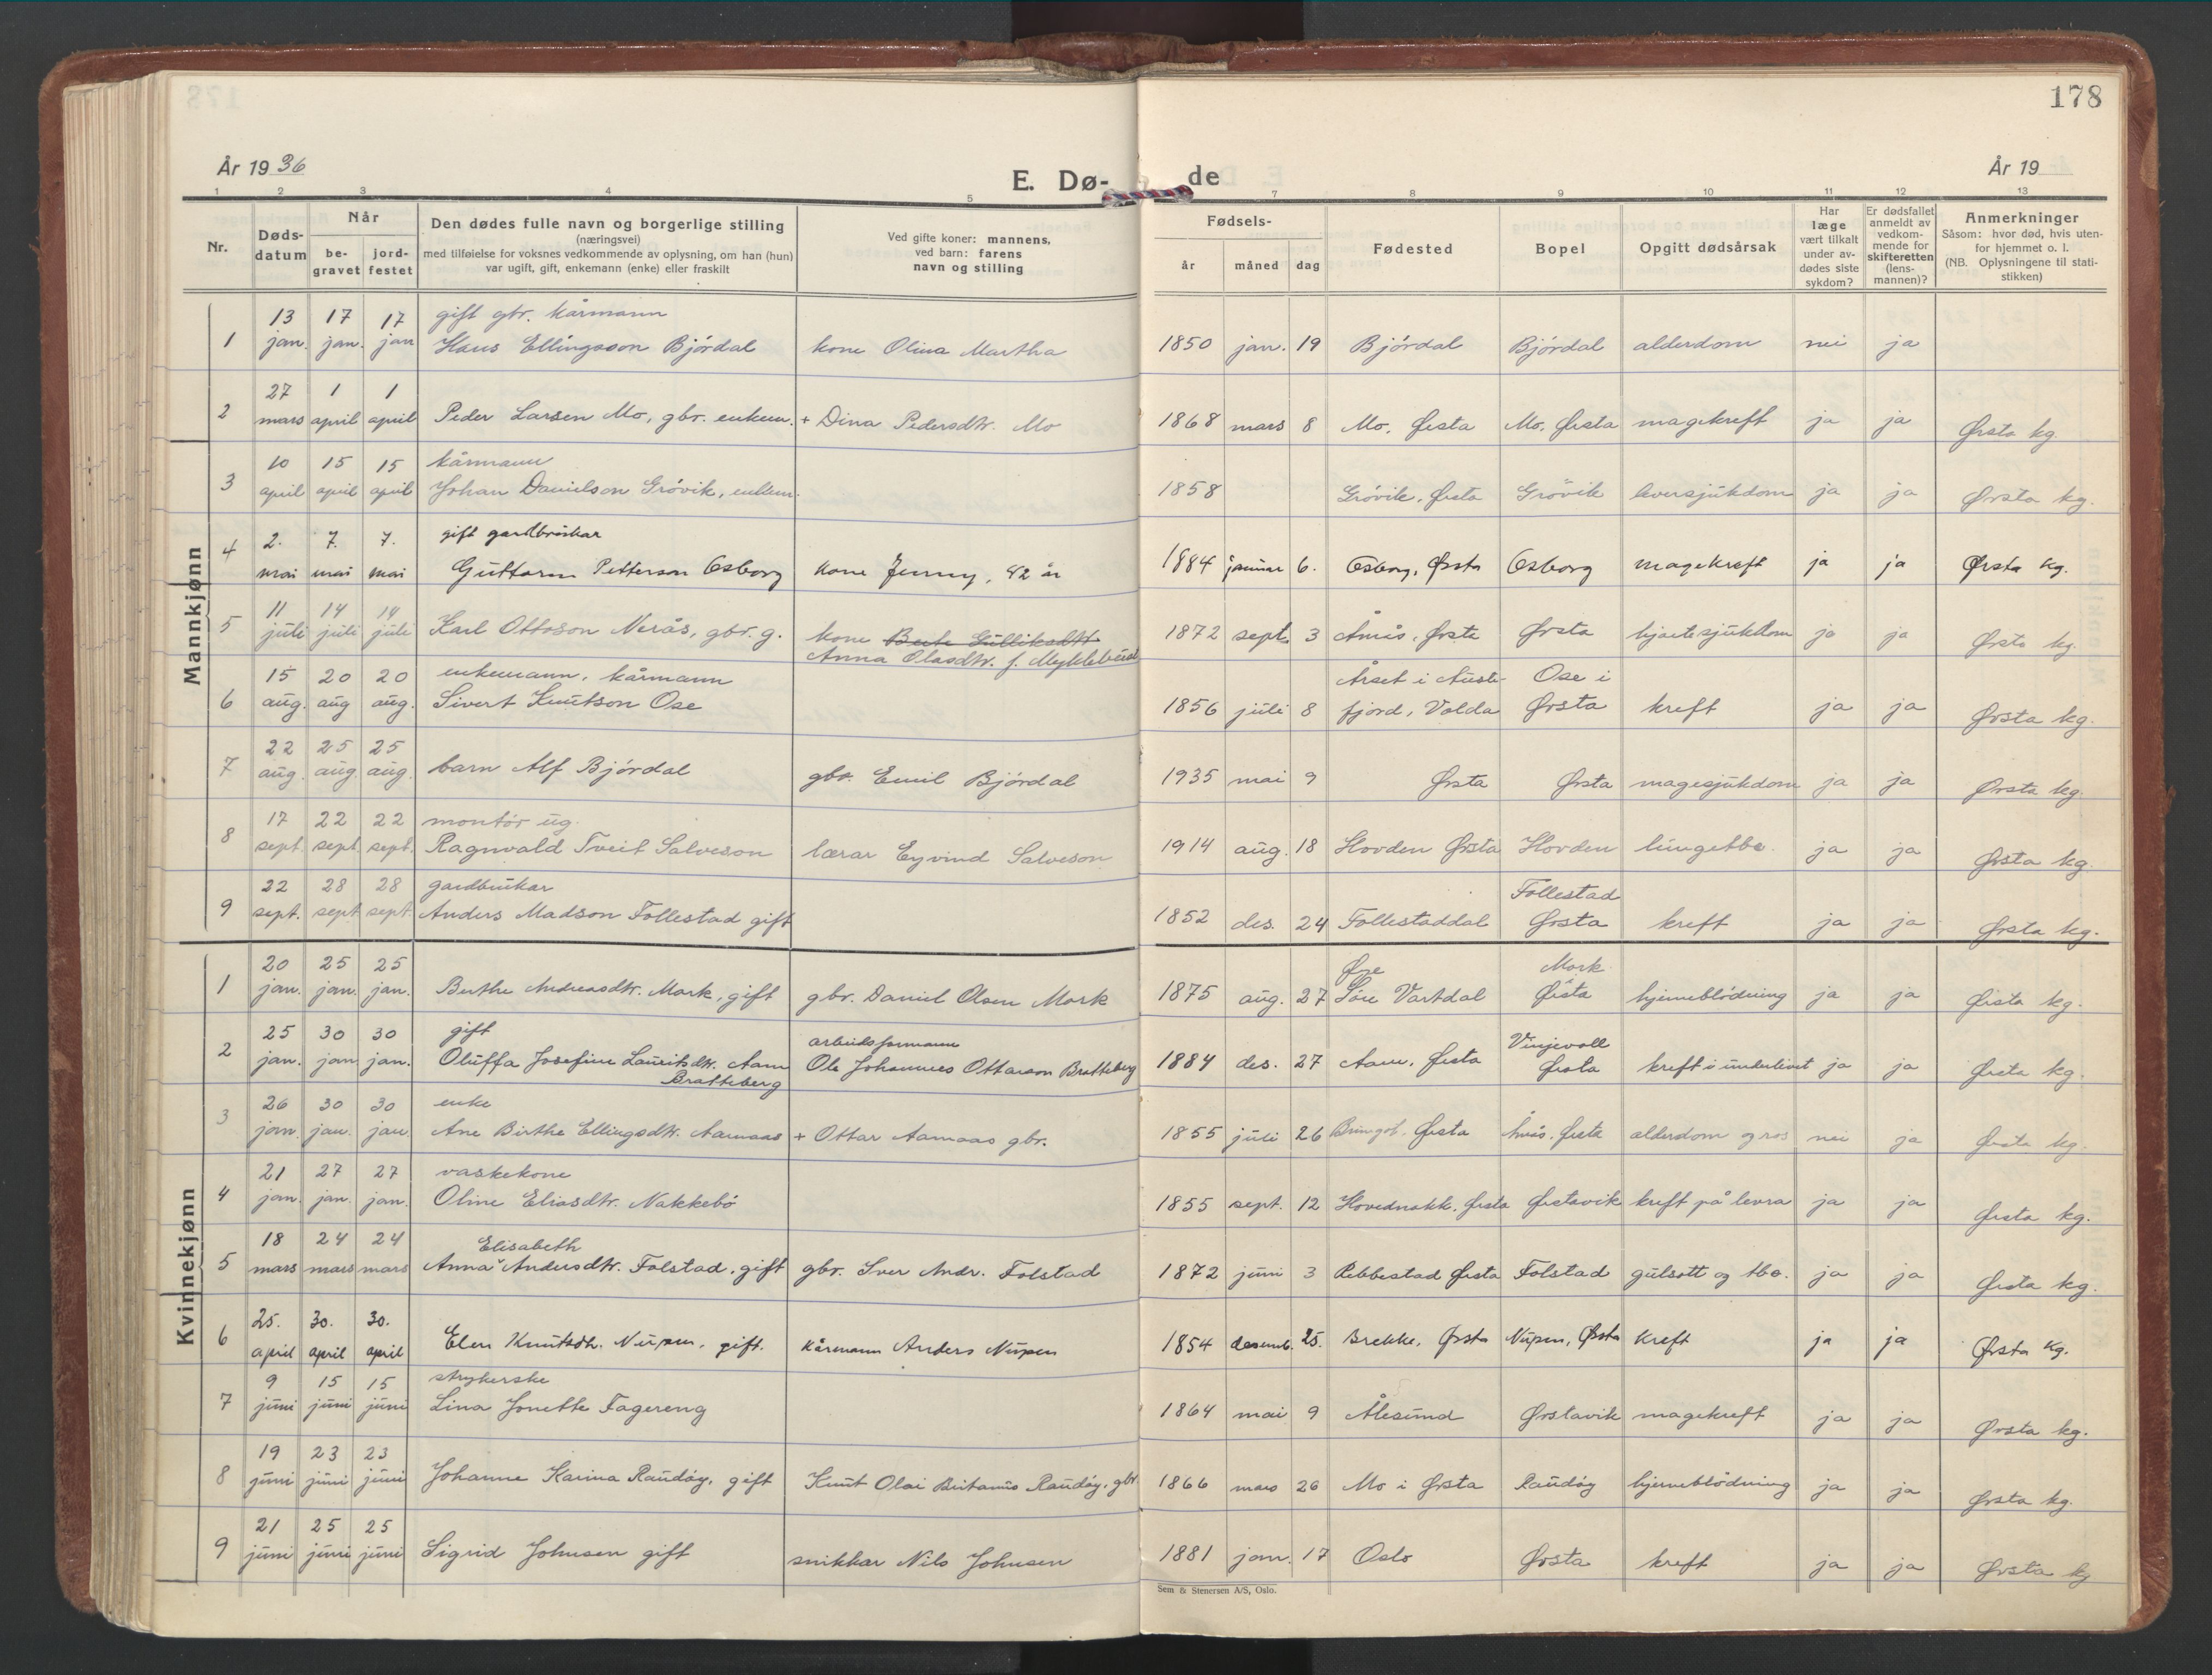 178
År 1936
E. Dø-
de
År 19
1 2 3 4 5 7 8 9 10 11 12 13
Nr.
Døds-
datum
Når
be-
gravet
jord-
festet
Den dødes fulle navn og borgerlige stilling
(næringsvei)
med tilføielse for voksnes vedkommende av oplysning, om han (hun)
var ugift, gift, enkemann (enke) eller fraskilt
Ved gifte koner: mannens,
ved barn: farens
navn og stilling
Fødsels-
år måned dag
Fødested
Bopel
Opgitt dødsårsak
Har
læge
vært tilkalt
under av-
dødes siste
sykdom?
Er dødsfallet
anmeldt av
vedkom-
mende for
skifteretten
(lens-
mannen)?
Anmerkninger
Såsom: hvor død, hvis uten-
for hjemmet o. l.
(NB. Oplysningene til stati-
stikken)
Mannkjønn
13 17 17 gift gbr. kårmann
1 jan. jan. jan Hans Ellingsson Bjórdal kone Olina Martha 1850 jan. 19 Bjórdal Bjórdal alderdom nei ja
27 1 1
2 mars april april Peder Larsen Mo, gbr. enkem. + Dina Pedersdtr. Mo 1868 mars 8 Mo, Ørsta Mo, Ørsta magekreft ja ja Ørsta kg.
10 15 15 kårmann
3 april april april Johan Danielson Gróvik, enkem. 1858 Gróvik, Ørsta Gróvik leversjukdom ja ja Ørsta kg.
2. 7. 7. gift gardbrukar
4 mai mai mai Guttorm Petterson Osborg kone Jenny, 42 år 1884 januar 6. Osborg, Ørsta Osborg magekreft ja ja Ørsta kg.
11 14 14
5 juli juli juli Karl Ottoson Nerås, gbr. g. kone Berte Gulliksdtr. 1872 sept. 3 Åmås, Ørsta Ørsta hjartesjukdom ja ja Ørsta kg.
Anna Olasdtr. f. Myklebust
15 20 20 enkemann, kårmann Årset i Auste- Ose i
6 aug. aug aug. Sivert Knutson Ose 1856 juli 8 fjord, Volda Ørsta kreft ja ja Ørsta kg.
22 25 25
7 aug. aug. aug. barn Alf Bjórdal gbr. Emil Bjórdal 1935 mai 9 Ørsta Ørsta magesjukdom ja ja Ørsta kg.
17 22 22 montór ug.
8 sept. sept. sept. Ragnvald Tveit Salveson lærar Eyvind Salveson 1914 aug. 18 Hovden Ørsta Hovden lungetbc. ja ja Ørsta kg.
22 28 28 gardbrukar Follestad
9 sept. sept sept. Anders Madson Follestad gift 1852 des. 24 Follestaddal Ørsta kreft ja ja Ørsta kg.
Kvinnekjønn
20 25 25 Øre Mork
1 jan. jan. jan. Berthe Andreasdtr. Mork, gift gbr. Daniel Olsen Mork 1875 aug. 27 Søre Vartdal Ørsta hjerneblódning ja ja Ørsta kg.
25 30 30 gift arbeidsformann Vinjevoll
2 jan. jan jan. Oluffa Josefine Lauritsdtr. Aam Ole Johannes Ottarson Bratteberg 1884 des. 27 Aam, Ørsta Ørsta kreft i underlivet ja ja Ørsta kg.
Bratteberg
26 30 30 enke
3 jan. jan. jan. Ane Birthe Ellingsdtr. Aamaas + Ottar Aamaas gbr. 1855 juli 26 Ørsta Åmås, Ørsta alderdom og ros nei ja Ørsta kg.
21 27 27 vaskekone
4 jan. jan. jan. Oline Eliasdtr. Nakkebó 1855 sept. 12 Hovednakk, Ørsta Ørstavik kreft på levra ja ja Ørsta kg.
18 24 24 Elisabeth
5 mars mars mars Anna Andersdtr. Folstad, gift gbr. Iver Andr. Folstad 1872 juni 3 Rebbestad Ørsta Folstad gulsott og tbc. ja ja Ørsta kg.
25. 30. 30.
6 april april april Elen Knutsdtr. Nupen, gift. kårmann Anders Nupen 1854 desemb. 25. Brekke, Ørsta Nupen, Ørsta kreft ja ja Ørsta kg.
9 15 15 strykerske
7 juni juni juni Lina Jonette Fagereng 1864 mai 9 Ålesund Ørstavik magekreft ja ja Ørsta kg.
19 23 23
8 juni juni juni Johanne Karina Raudóy, gift Knut Olai Raudóy, gbr. 1866 mars 26 Mo i Ørsta Raudóy hjerneblódning ja ja Ørsta kg.
21 25 25
9 juni juni juni Sigrid Johnsen gift snikkar Nils Johnsen 1881 jan. 17 Oslo Ørsta kreft ja ja Ørsta kg
Sem & Stenersen A/S, Oslo.